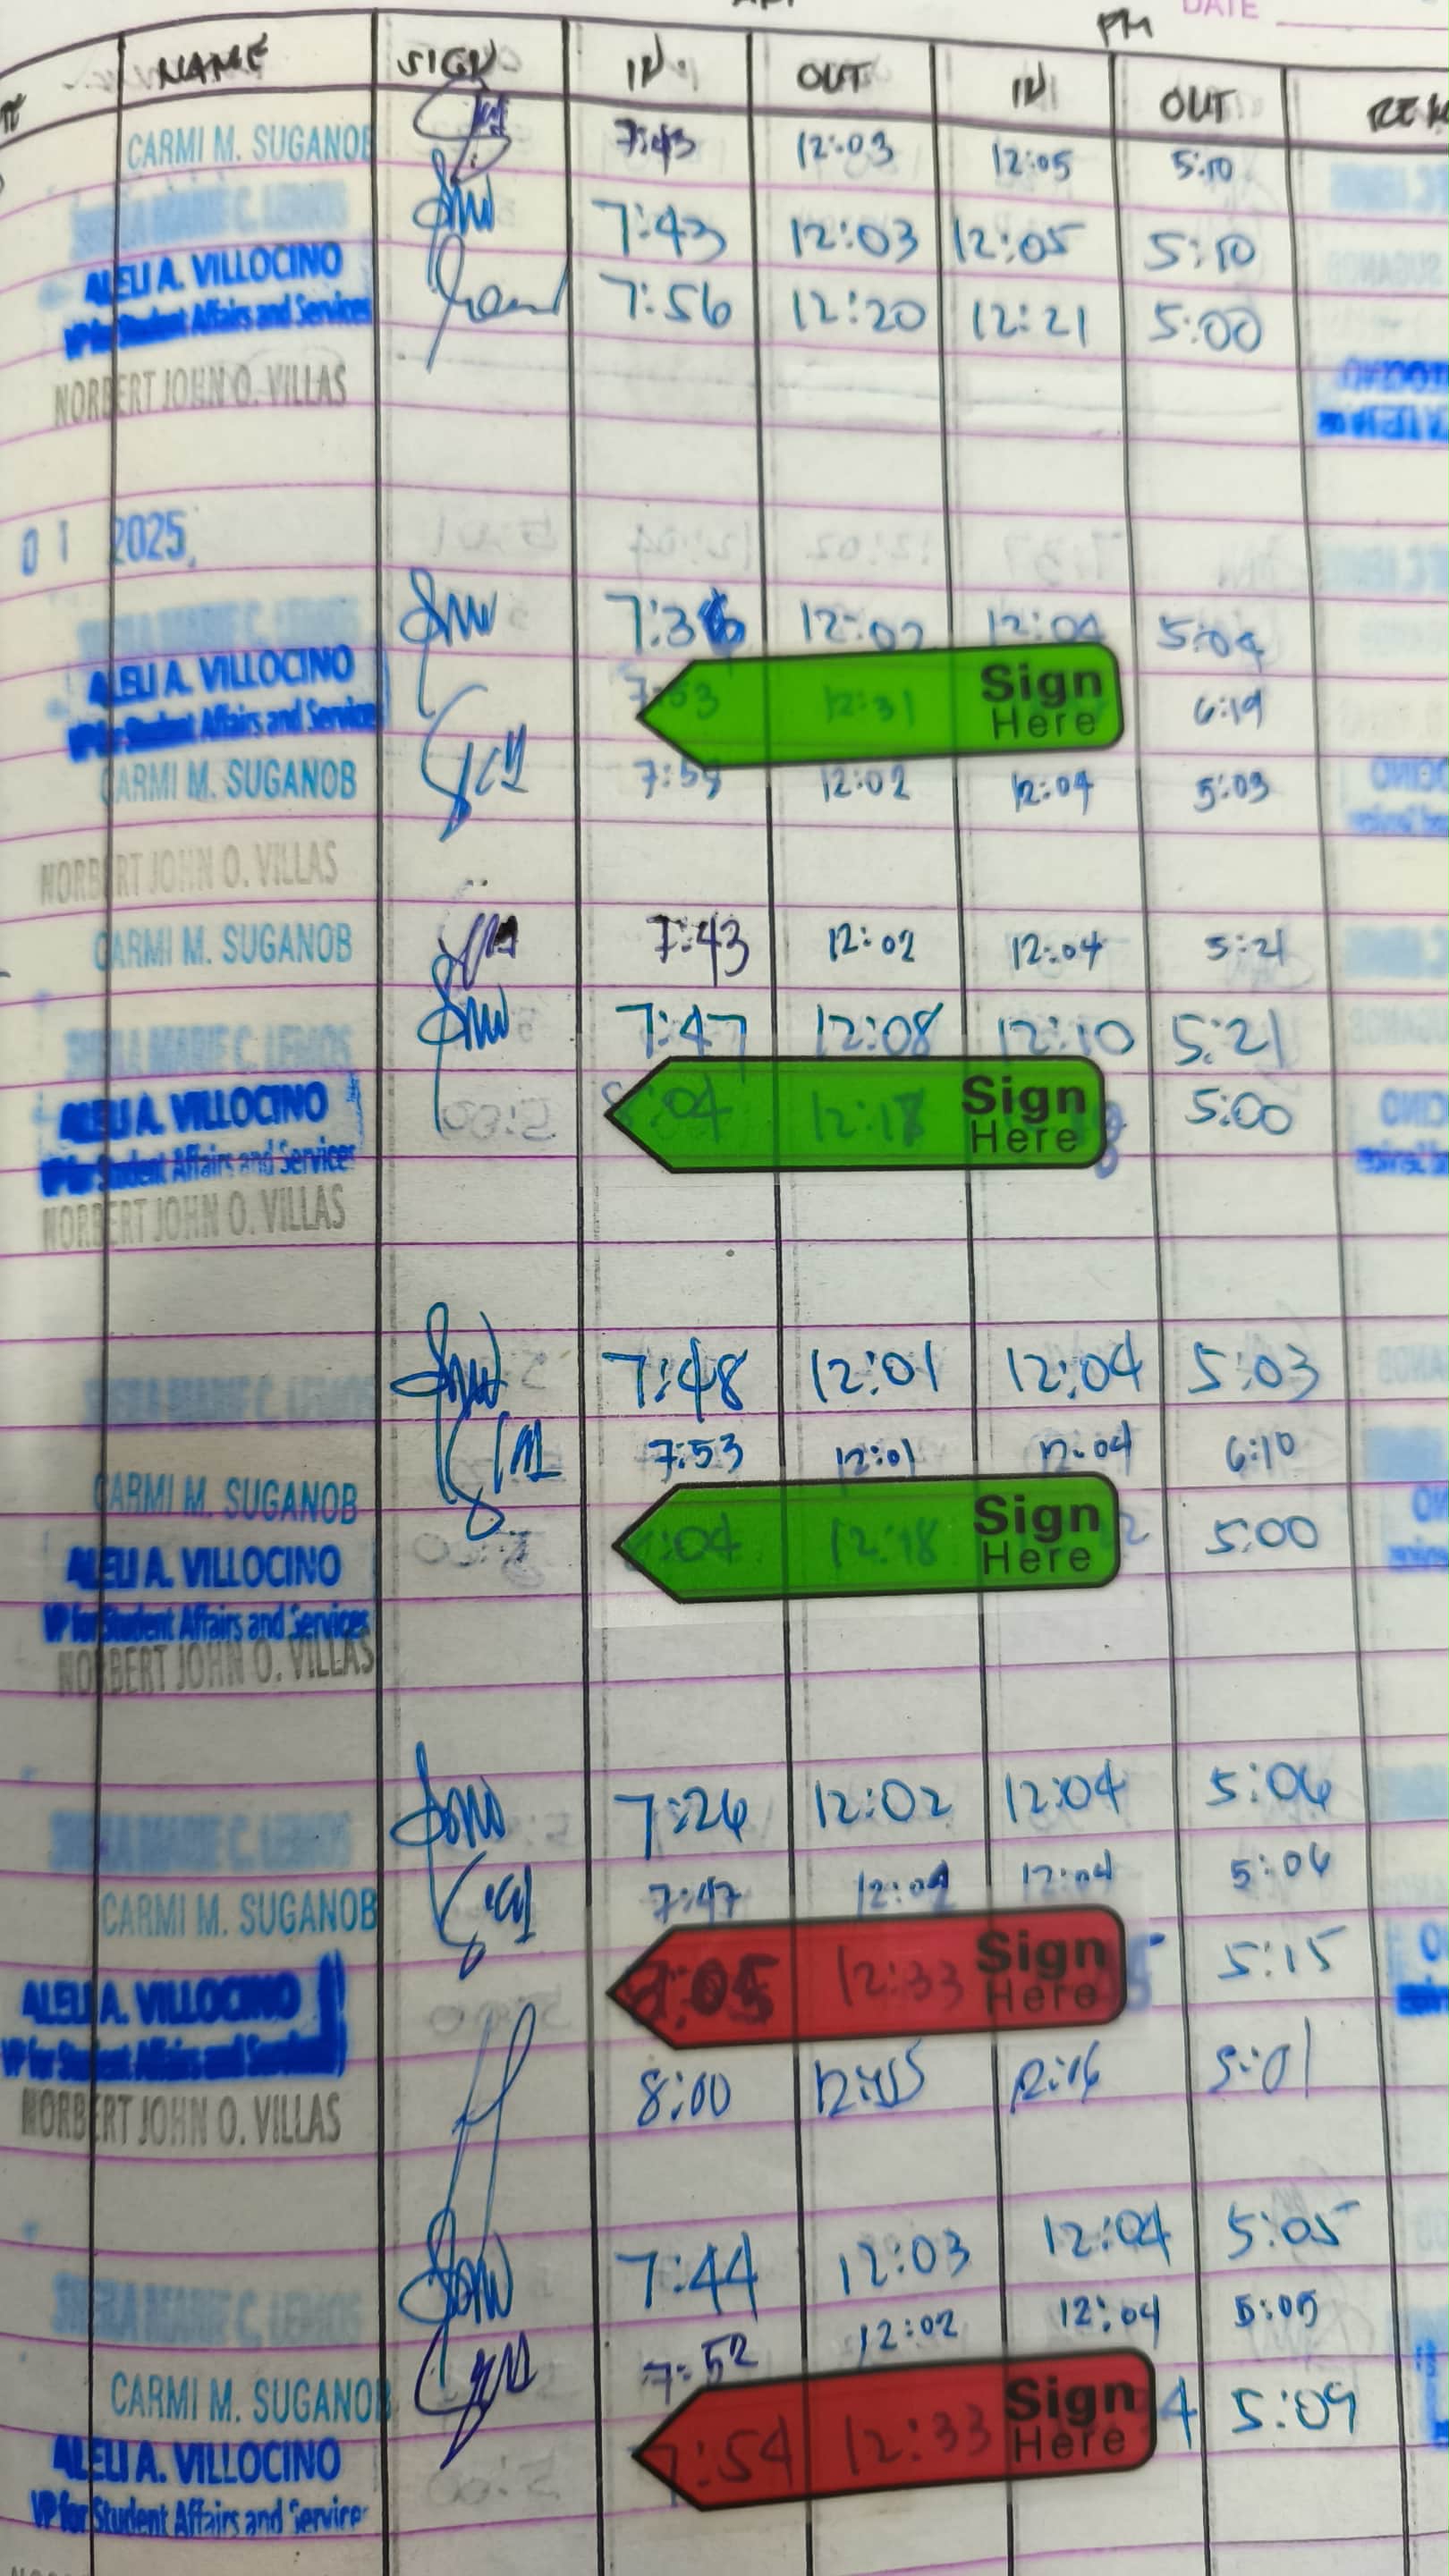 PM DATE
NAME SIGN IN OUT IN OUT
CARMI M. SUGANOB 7:43 12:03 12:05 5:10
7:43 12:03 12:05 5:10
ALELI A. VILLOCINO 7:56 12:20 12:21 5:00
VP for Student Affairs and Services
NORBERT JOHN O. VILLAS
01 2025
7:36 12:02 12:04 5:04
ALELI A. VILLOCINO 7:53 12:31 Sign Here 6:19
VP for Student Affairs and Services
CARMI M. SUGANOB 12:02 12:04 5:03
NORBERT JOHN O. VILLAS
CARMI M. SUGANOB 7:43 12:02 12:04 5:21
7:47 12:08 12:10 5:21
ALELI A. VILLOCINO 8:04 Sign Here 5:00
VP for Student Affairs and Services
NORBERT JOHN O. VILLAS
7:48 12:01 12:04 5:03
CARMI M. SUGANOB 7:53 12:01 12:04 6:10
ALELI A. VILLOCINO :04 12:18 Sign Here 5:00
VP for Student Affairs and Services
NORBERT JOHN O. VILLAS
7:26 12:02 12:04 5:06
CARMI M. SUGANOB 7:47 12:04 5:06
ALELI A. VILLOCINO 12:33 Sign Here 5:15
VP for Student Affairs and Services
NORBERT JOHN O. VILLAS 8:00 12:15 12:16 5:01
7:44 12:03 12:04 5:05
CARMI M. SUGANOB 7:52 12:02 12:04 5:05
ALELI A. VILLOCINO 7:54 12:33 Sign Here 4 5:09
VP for Student Affairs and Service